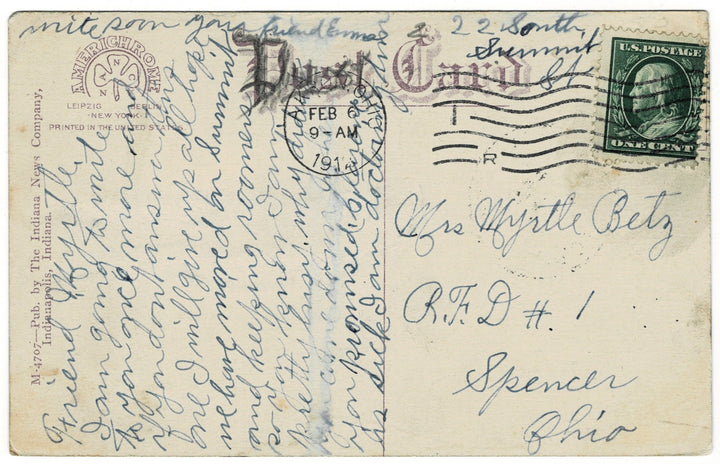 write soon your friend Emma
22 South
Summit
St
Post Card
AMERICHROME
LEIPZIG BERLIN
-NEW YORK-
PRINTED IN THE UNITED STATES
M-4707—Pub. by The Indiana News Company,
Indianapolis, Indiana.
AKRON, OHIO
FEB 6
9-AM
1914
R
U.S. POSTAGE
ONE CENT
Friend Myrtle,
I am going to write
to you once more and
if you don't answer this
one I will give up all hope
we have moved on Summit
and keeping roomers
so you know I am
pretty busy. why don't
you come down
you promised
as sick I am doctoring
Mrs Myrtle Betz
R.F.D # 1
Spencer
Ohio